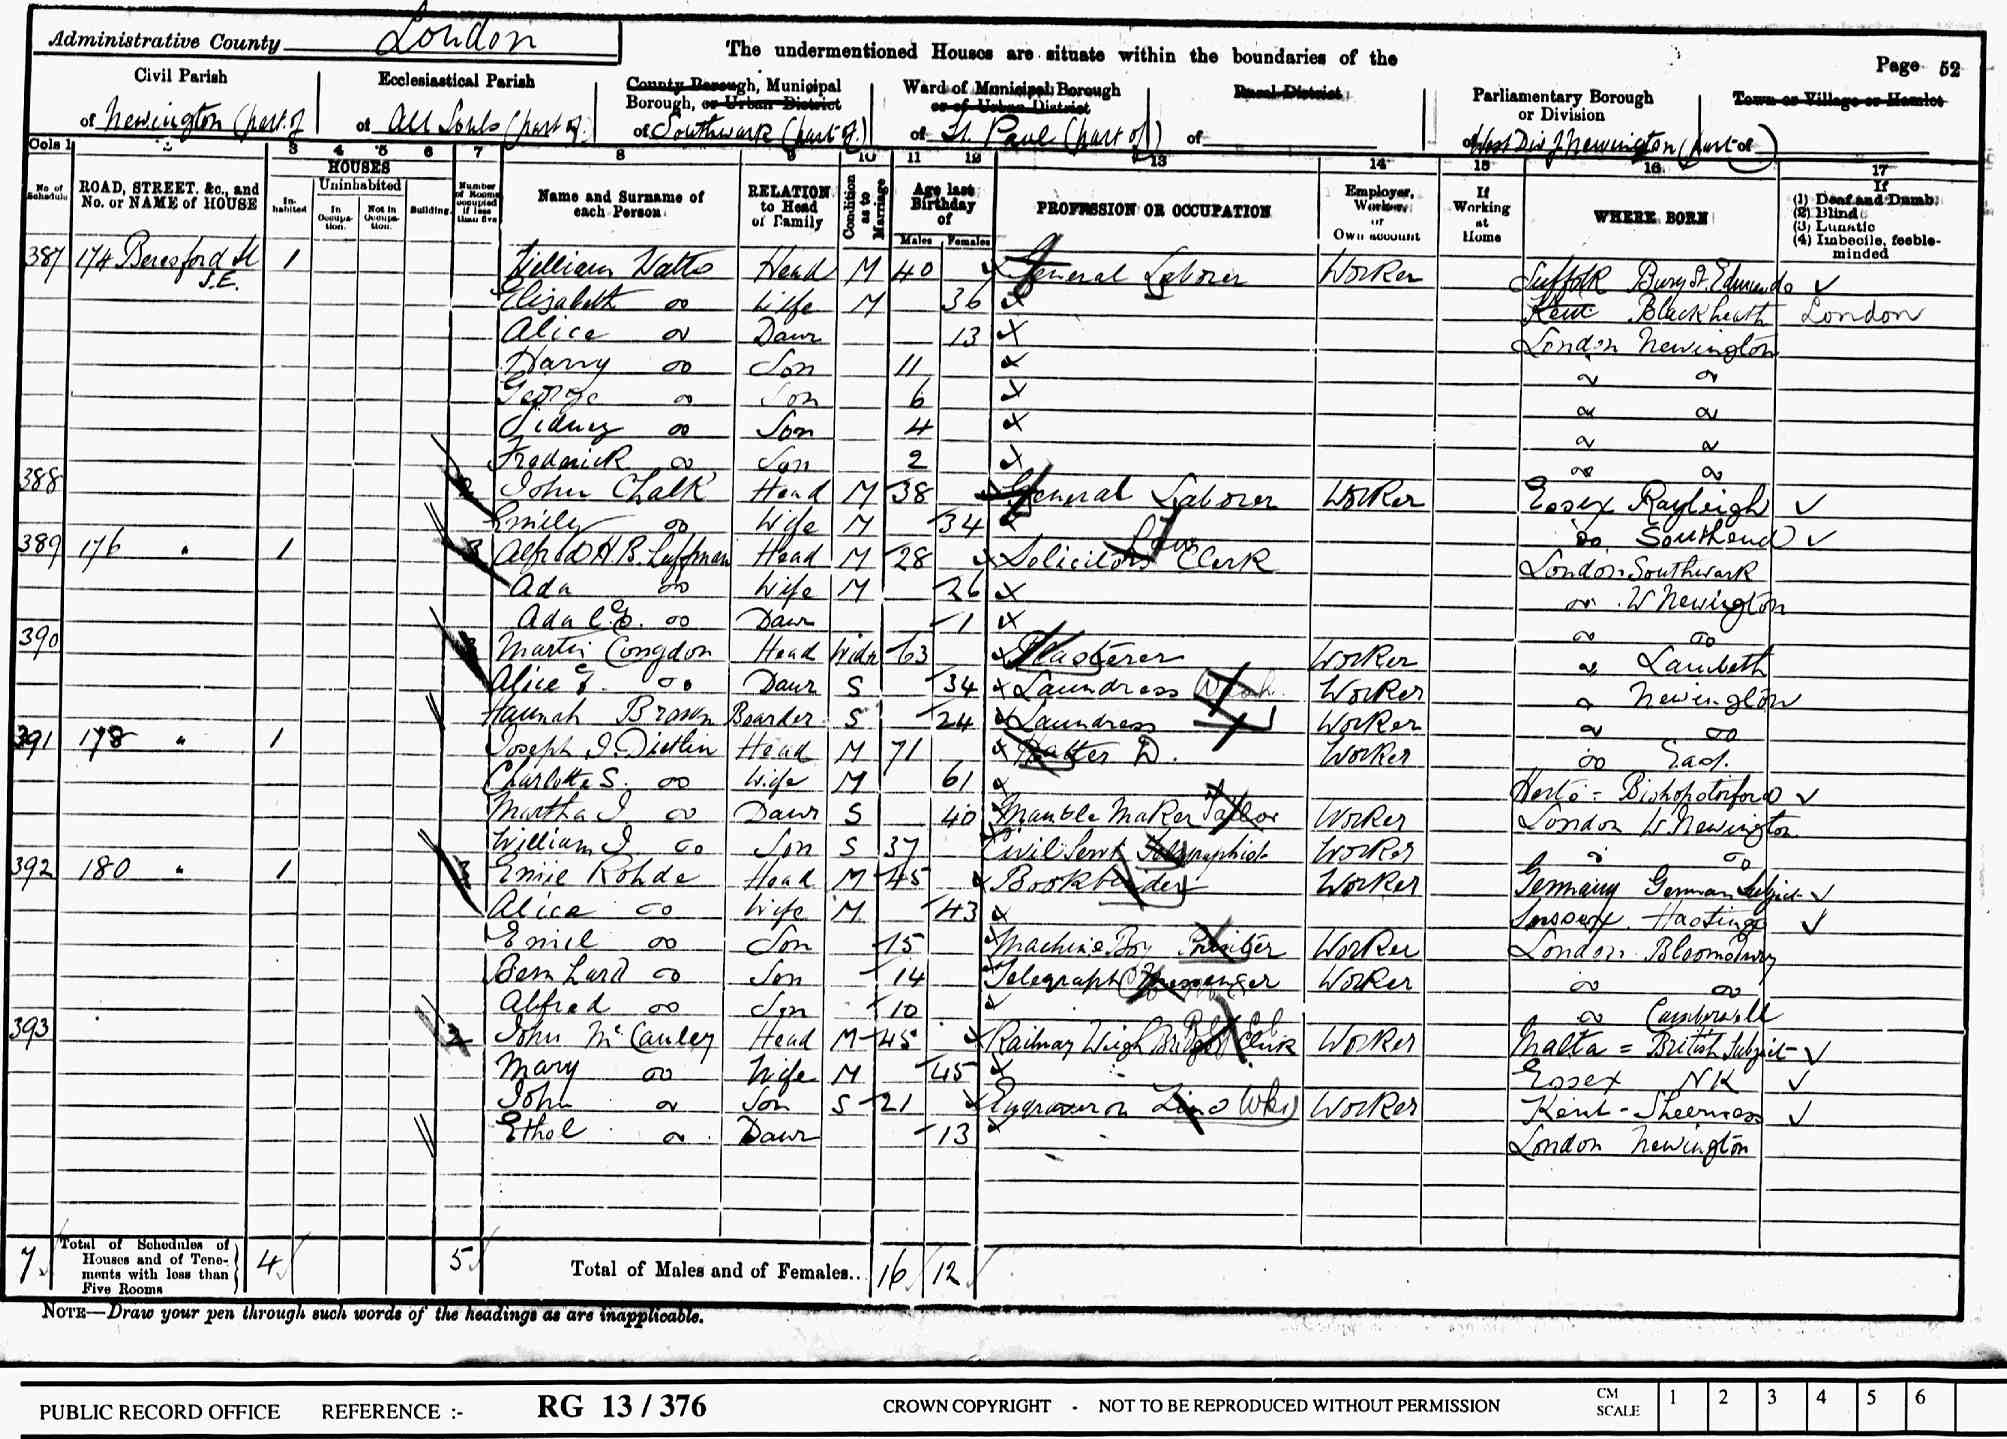 Administrative County London
The undermentioned Houses are situate within the boundaries of the
Page 52
Civil Parish of Newington (part of
Ecclesiastical Parish of All Souls (part of)
County Borough, Municipal Borough, or Urban District of Southwark (part of)
Ward of Municipal Borough or of Urban District of St. Paul (part of)
Rural District of
Parliamentary Borough or Division of West Div of Newington (part of)
Town or Village or Hamlet
Cols 1 2 3 4 5 6 7 8 9 10 11 12 13 14 15 16 17
No. of Schedule
ROAD, STREET, &c., and No. or NAME of HOUSE
HOUSES
Inhabited
Uninhabited
In Occupation.
Not in Occupation.
Building.
Number of Rooms occupied if less than five
Name and Surname of each Person
RELATION to Head of Family
Condition as to Marriage
Age last Birthday of
Males Females
PROFESSION OR OCCUPATION
Employer, Worker, or Own account
If Working at Home
WHERE BORN
If
(1) Deaf and Dumb
(2) Blind
(3) Lunatic
(4) Imbecile, feeble-minded
387 174 Beresford St S.E. 1 William Watts Head M 40 General Laborer Worker Suffolk Bury St. Edmunds
Elizabeth do Wife M 36 Kent Blackheath London
Alice do Daur 13 London Newington
Harry do Son 11 do do
George do Son 6 do do
Sidney do Son 4 do do
Frederick do Son 2 do do
388 John Chalk Head M 38 General Laborer Worker Essex Rayleigh
Emily do Wife M 34 do Southend
389 176 " 1 3 Alfred H. B. Luffman Head M 28 Solicitors Law Clerk London Southwark
Ada do Wife M 26 do W Newington
Ada C. E. do Daur 1 do do
390 Martin Congdon Head Widr 63 Plasterer Worker do Lambeth
Alice E. do Daur S 34 Laundress Wash Worker do Newington
Hannah Brown Boarder S 24 Laundress Worker do do
391 178 " 1 Joseph J. Dietlin Head M 71 Hatter D. Worker do East
Charlotte S. do Wife M 61 Herts = Bishopstorford
Martha J. do Daur S 40 Mantle Maker Tailor Worker London W. Newington
William J. do Son S 37 Civil Servt Telegraphist Worker do do
392 180 " 1 3 Emil Rohde Head M 45 Bookbinder Worker Germany German Subject
Alice do Wife M 43 Sussex Hastings
Emil do Son 15 Machine Boy Printer Worker London Bloomsbury
Bernhard do Son 14 Telegraph Messenger Worker do do
Alfred do Son 10 do Camberwell
393 John McCauley Head M 45 Railway Weigh Bridge Clerk Worker Malta = British Subject
Mary do Wife M 45 Essex NK
John do Son S 21 Engraver on Worker Kent - Sheerness
Ethel do Daur 13 London Newington
7 Total of Schedules of Houses and of Tenements with less than Five Rooms 4 5 Total of Males and of Females.. 16 12
NOTE—Draw your pen through such words of the headings as are inapplicable.
PUBLIC RECORD OFFICE REFERENCE :- RG 13 / 376 CROWN COPYRIGHT - NOT TO BE REPRODUCED WITHOUT PERMISSION CM SCALE 1 2 3 4 5 6